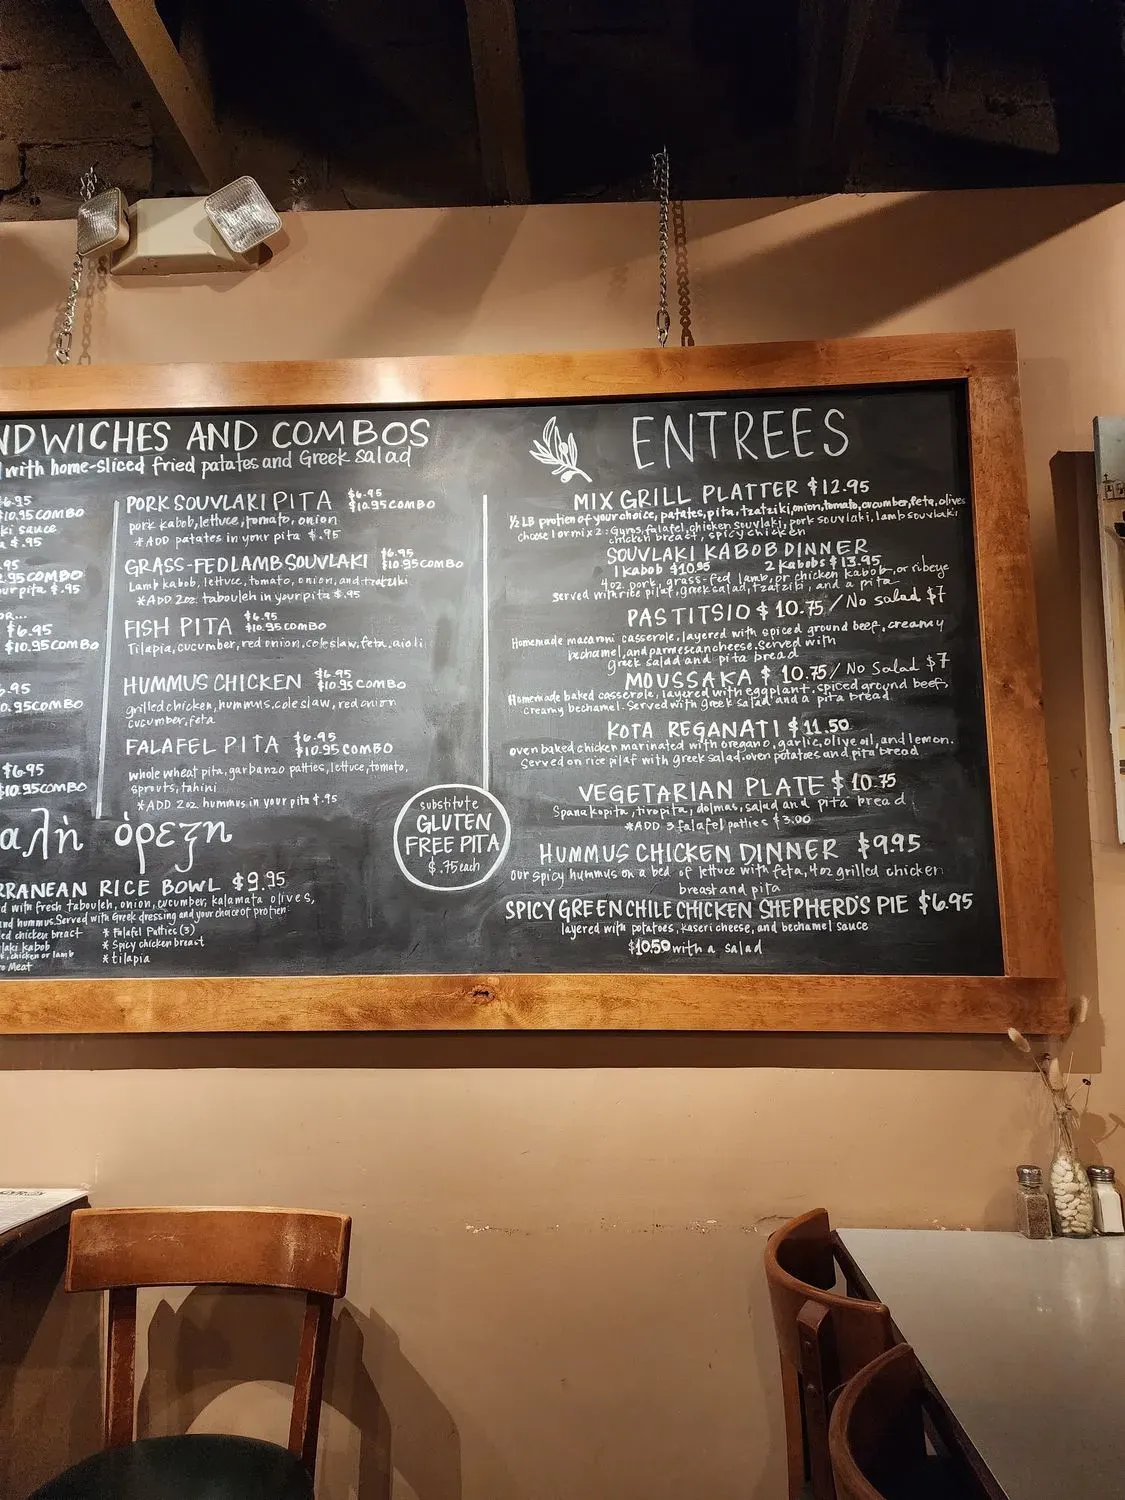 NDWICHES AND COMBOS
with home-sliced fried patates and Greek salad
$6.95
$10.95 COMBO
ki sauce
a $.95
.95
2.95 COMBO
our pita $.95
OR...
$6.95
$10.95 COMBO
6.95
0.95 COMBO
$6.95
$10.95 COMBO
PORK SOUVLAKI PITA $6.95
$10.95 COMBO
pork kabob, lettuce, tomato, onion
*ADD patates in your pita $.95
GRASS-FED LAMB SOUVLAKI $6.95
$10.95 COMBO
Lamb kabob, lettuce, tomato, onion, and tzatziki
*ADD 2oz. tabouleh in your pita $.95
FISH PITA $6.95
$10.95 COMBO
Tilapia, cucumber, red onion, coleslaw, feta, aioli
HUMMUS CHICKEN $6.95
$10.95 COMBO
grilled chicken, hummus, coleslaw, red onion
cucumber, feta
FALAFEL PITA $6.95
$10.95 COMBO
whole wheat pita, garbanzo patties, lettuce, tomato,
sprouts, tahini
*ADD 2oz hummus in your pita $.95
substitute
GLUTEN
FREE PITA
$.75 each
αλὴ ὀρεξη
RRANEAN RICE BOWL $9.95
d with fresh tabouleh, onion, cucumber, kalamata olives,
and hummus. Served with Greek dressing and your choice of protien:
ed chicken breast * Falafel Patties (3)
laki kabob * Spicy chicken breast
, chicken or lamb * tilapia
o Meat
ENTREES
MIX GRILL PLATTER $12.95
½ LB protien of your choice, patates, pita, tzatziki, onion, tomato, cucumber, feta, olives
choose 1 or mix 2: Gyros, falafel, chicken souvlaki, pork souvlaki, lamb souvlaki
chicken breast, spicy chicken
SOUVLAKI KABOB DINNER
1 kabob $10.95 2 kabobs $13.95
4oz. pork, grass-fed lamb, or chicken kabob, or ribeye
served with rice pilaf, greek salad, tzatziki, and a pita
PASTITSIO $10.75 / No salad $7
Homemade macaroni casserole, layered with spiced ground beef, creamy
bechamel, and parmesean cheese. Served with
greek salad and pita bread
MOUSSAKA $10.75 / No Salad $7
Homemade baked casserole, layered with eggplant, spiced ground beef,
creamy bechamel. Served with greek salad and a pita bread
KOTA REGANATI $11.50
oven baked chicken marinated with oregano, garlic, olive oil, and lemon.
Served on rice pilaf with greek salad, oven potatoes and pita bread
VEGETARIAN PLATE $10.75
Spanakopita, tiropita, dolmas, salad and pita bread
*ADD 3 falafel patties $3.00
HUMMUS CHICKEN DINNER $9.95
our spicy hummus on a bed of lettuce with feta, 4oz grilled chicken
breast and pita
SPICY GREEN CHILE CHICKEN SHEPHERD'S PIE $6.95
layered with potatoes, kaseri cheese, and bechamel sauce
$10.50 with a salad